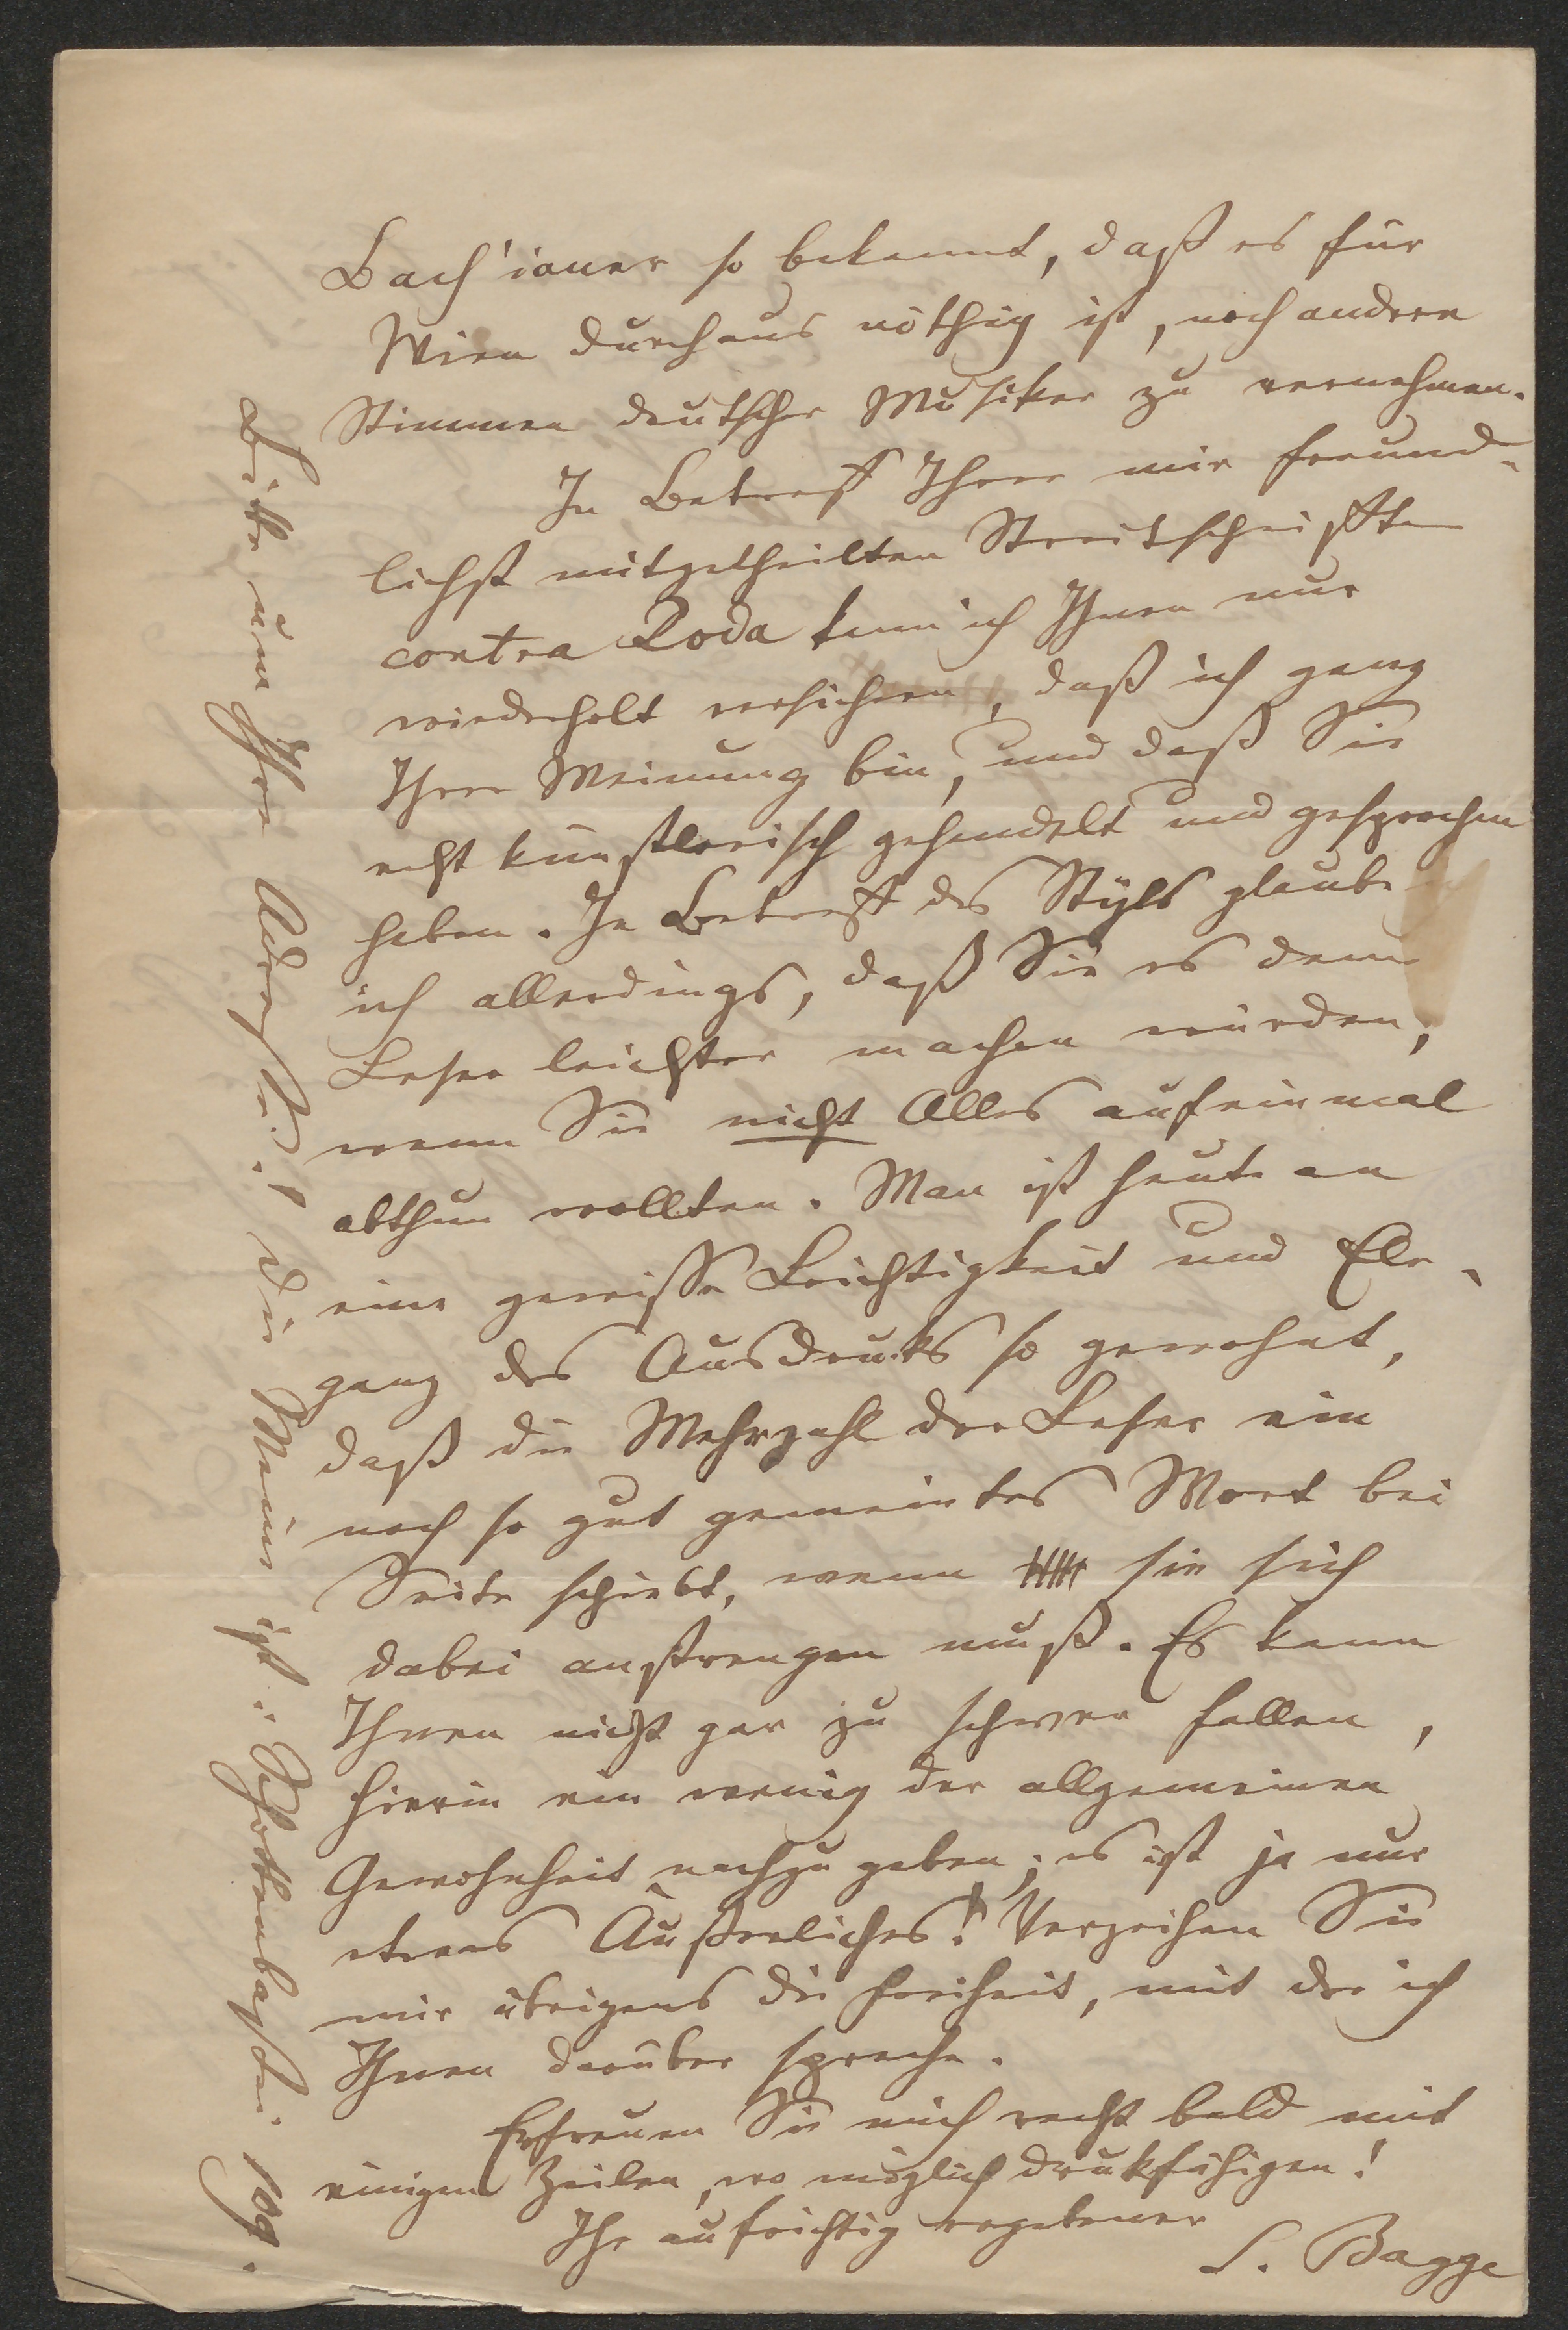 Bach'ianer so bekannt, daß es für
Wien durchaus nöthig ist, noch andere
Stimmen deutscher Musiker zu vernehmen.
In Betreff Ihrer mir freund-
lichst mitgetheilten Streitschriften
contra Roda kann ich Ihnen nur
wiederholt versichern, daß ich ganz
Ihrer Meinung bin, und daß Sie
echt künstlerisch gehandelt und gesprochen
haben. In Betreff des Styls glaube
ich allerdings, daß Sie es dem
Leser leichter machen würden,
wenn Sie nicht Alles auf einmal
abthun wollten. Man ist heute an
eine gewisse Leichtigkeit und Ele-
ganz des Ausdrucks so gewohnt,
daß die Mehrzahl der Leser ein
noch so gut gemeintes Wort bei
Seite schiebt, wenn sie sich
dabei anstrengen muß. Es kann
Ihnen nicht gar zu schwer fallen,
hierin ein wenig der allgemeinen
Gewohnheit nachzugeben; es ist ja nur
etwas Äußerliches! Verzeihen Sie
mir übrigens die Freiheit, mit der ich
Ihnen darüber spreche.
Erfreuen Sie mich recht bald mit
einigen Zeilen, wo möglich druckfähigen!
Ihr aufrichtig ergebener
S. Bagge
Bitte um Ihre Adresse! Die Meine ist: Schottenbastei 109.